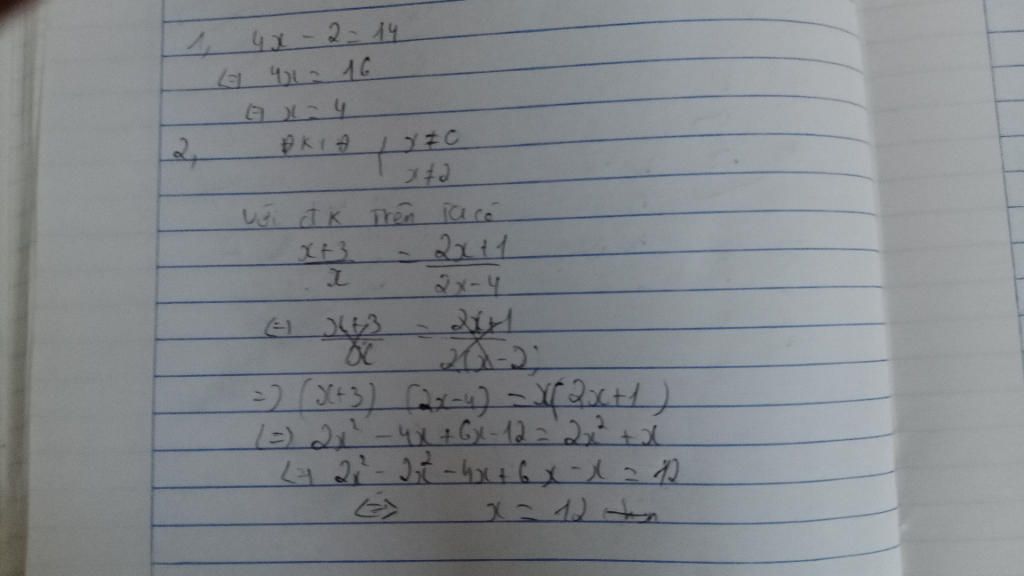 1, 4x - 2 = 14
<=> 4x = 16
<=> x = 4
2, ĐKXĐ { x ≠ 0
x ≠ 2
Với đk trên ta có
x+3 / x = 2x+1 / 2x-4
<=> x+3 / x = 2x+1 / 2(x-2)
=> (x+3) (2x-4) = x(2x+1)
<=> 2x² - 4x + 6x - 12 = 2x² + x
<=> 2x² - 2x² - 4x + 6x - x = 12
<=> x = 12